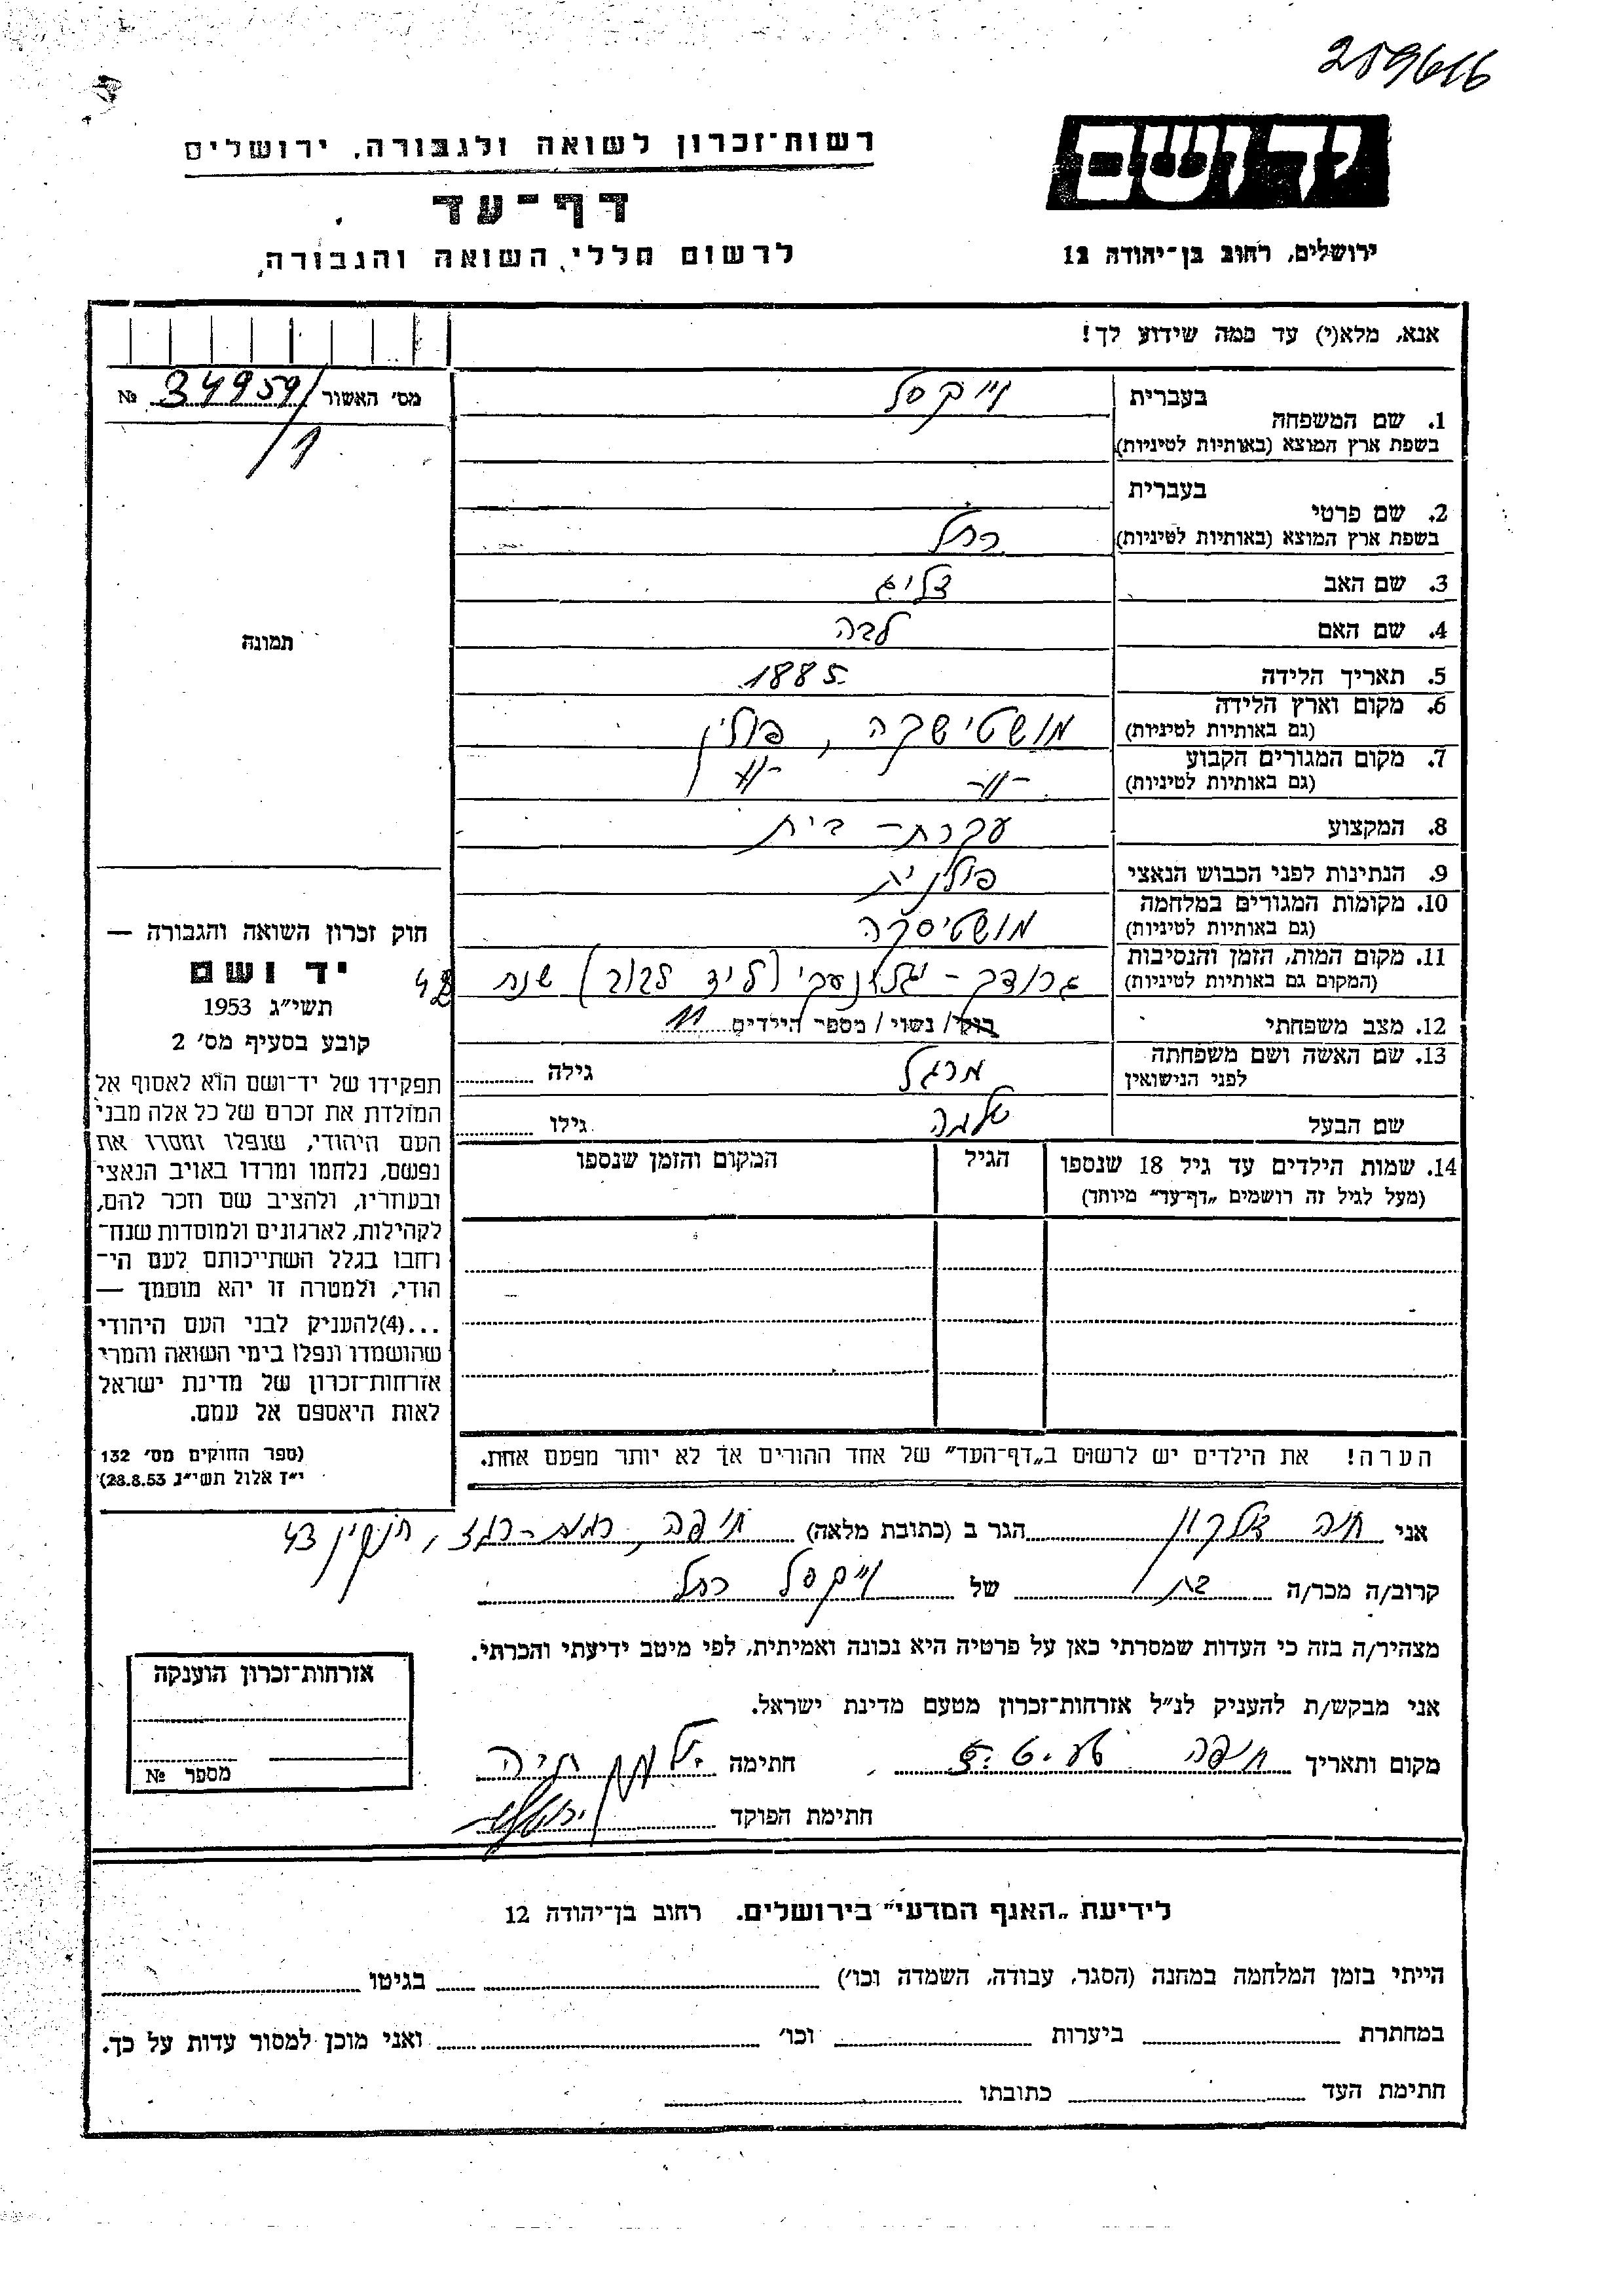 259616
יד ושם
ירושלים, רחוב בן-יהודה 12
רשות-זכרון לשואה ולגבורה, ירושלים
דף-עד
לרשום חללי השואה והגבורה
אנא, מלא(י) עד כמה שידוע לך!
מס' האשור 34959/ №
/1
תמונה
1. שם המשפחה
בעברית וייקסל
בשפת ארץ המוצא (באותיות לטיניות)
2. שם פרטי
בעברית
בשפת ארץ המוצא (באותיות לטיניות) רחל
3. שם האב זליג
4. שם האם לבה
5. תאריך הלידה 1885
6. מקום וארץ הלידה
(גם באותיות לטיניות) מושטישקה, פולין
7. מקום המגורים הקבוע
(גם באותיות לטיניות) -״- -״-
8. המקצוע עקרת-בית
9. הנתינות לפני הכבוש הנאצי פולנית
10. מקומות המגורים במלחמה
(גם באותיות לטיניות) מושטיסקה
11. מקום המות, הזמן והנסיבות
(המקום גם באותיות לטיניות) גרודק- (ליד לבוב) שנת 42
12. מצב משפחתי רוק/ נשוי / מספר הילדים 11
13. שם האשה ושם משפחתה
לפני הנישואין מרגל גילה
שם הבעל שלמה גילו
14. שמות הילדים עד גיל 18 שנספו
(מעל לגיל זה רושמים „דף-עד" מיוחד)
הגיל
המקום והזמן שנספו
חוק זכרון השואה והגבורה —
יד ושם
תשי"ג 1953
קובע בסעיף מס' 2
תפקידו של יד-ושם הוא לאסוף אל
המולדת את זכרם של כל אלה מבני
העם היהודי, שנפלו ומסרו את
נפשם, נלחמו ומרדו באויב הנאצי
ובעוזריו, ולהציב שם וזכר להם,
לקהילות, לארגונים ולמוסדות שנח-
רחבו בגלל השתייכותם לעם הי-
הודי, ולמטרה זו יהא מוסמך —
...(4)להעניק לבני העם היהודי
שהושמדו ונפלו בימי השואה והמרי
אזרחות-זכרון של מדינת ישראל
לאות היאספם אל עמם.
(ספר החוקים מס' 132
י"ז אלול תשי"ג 28.8.53)
הערה! את הילדים יש לרשום ב„דף-העד" של אחד ההורים אך לא יותר מפעם אחת.
אני חיה הגר ב (כתובת מלאה) חיפה, רמת-רמז, חנקין 43
קרוב/ה מכר/ה בת של וייקסל רחל
מצהיר/ה בזה כי העדות שמסרתי כאן על פרטיה היא נכונה ואמיתית, לפי מיטב ידיעתי והכרתי.
אני מבקש/ת להעניק לנ"ל אזרחות-זכרון מטעם מדינת ישראל.
מקום ותאריך חיפה חתימה
חתימת הפוקד
אזרחות-זכרון הוענקה
מספר №
לידיעת „האגף המדעי" בירושלים. רחוב בן-יהודה 12
הייתי בזמן המלחמה במחנה (הסגר, עבודה, השמדה וכו') בגיטו
במחתרת ביערות וכו' ואני מוכן למסור עדות על כך.
חתימת העד כתובתו